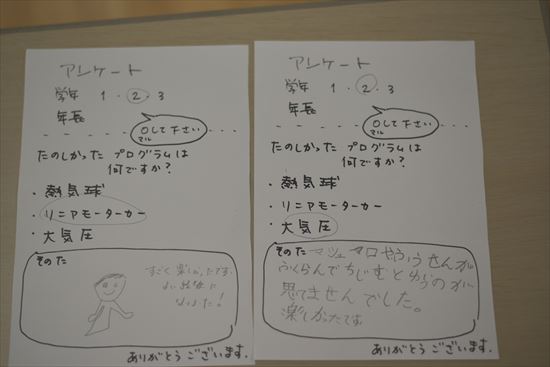 アンケート
学年 1・2・3
年長
○して下さい
マル
たのしかった プログラムは
何ですか？
・熱気球
・リニアモーターカー
・大気圧
その他
すごく楽しかったです。
ありがとう ございます.
アンケート
学年 1・2・3
年長
○して下さい
マル
たのしかった プログラムは
何ですか？
・熱気球
・リニアモーターカー
・大気圧
その他
マシュマロやふうせんが
ふくらんでちじむと
思てませんでした。
楽しかったです
ありがとう ございます.